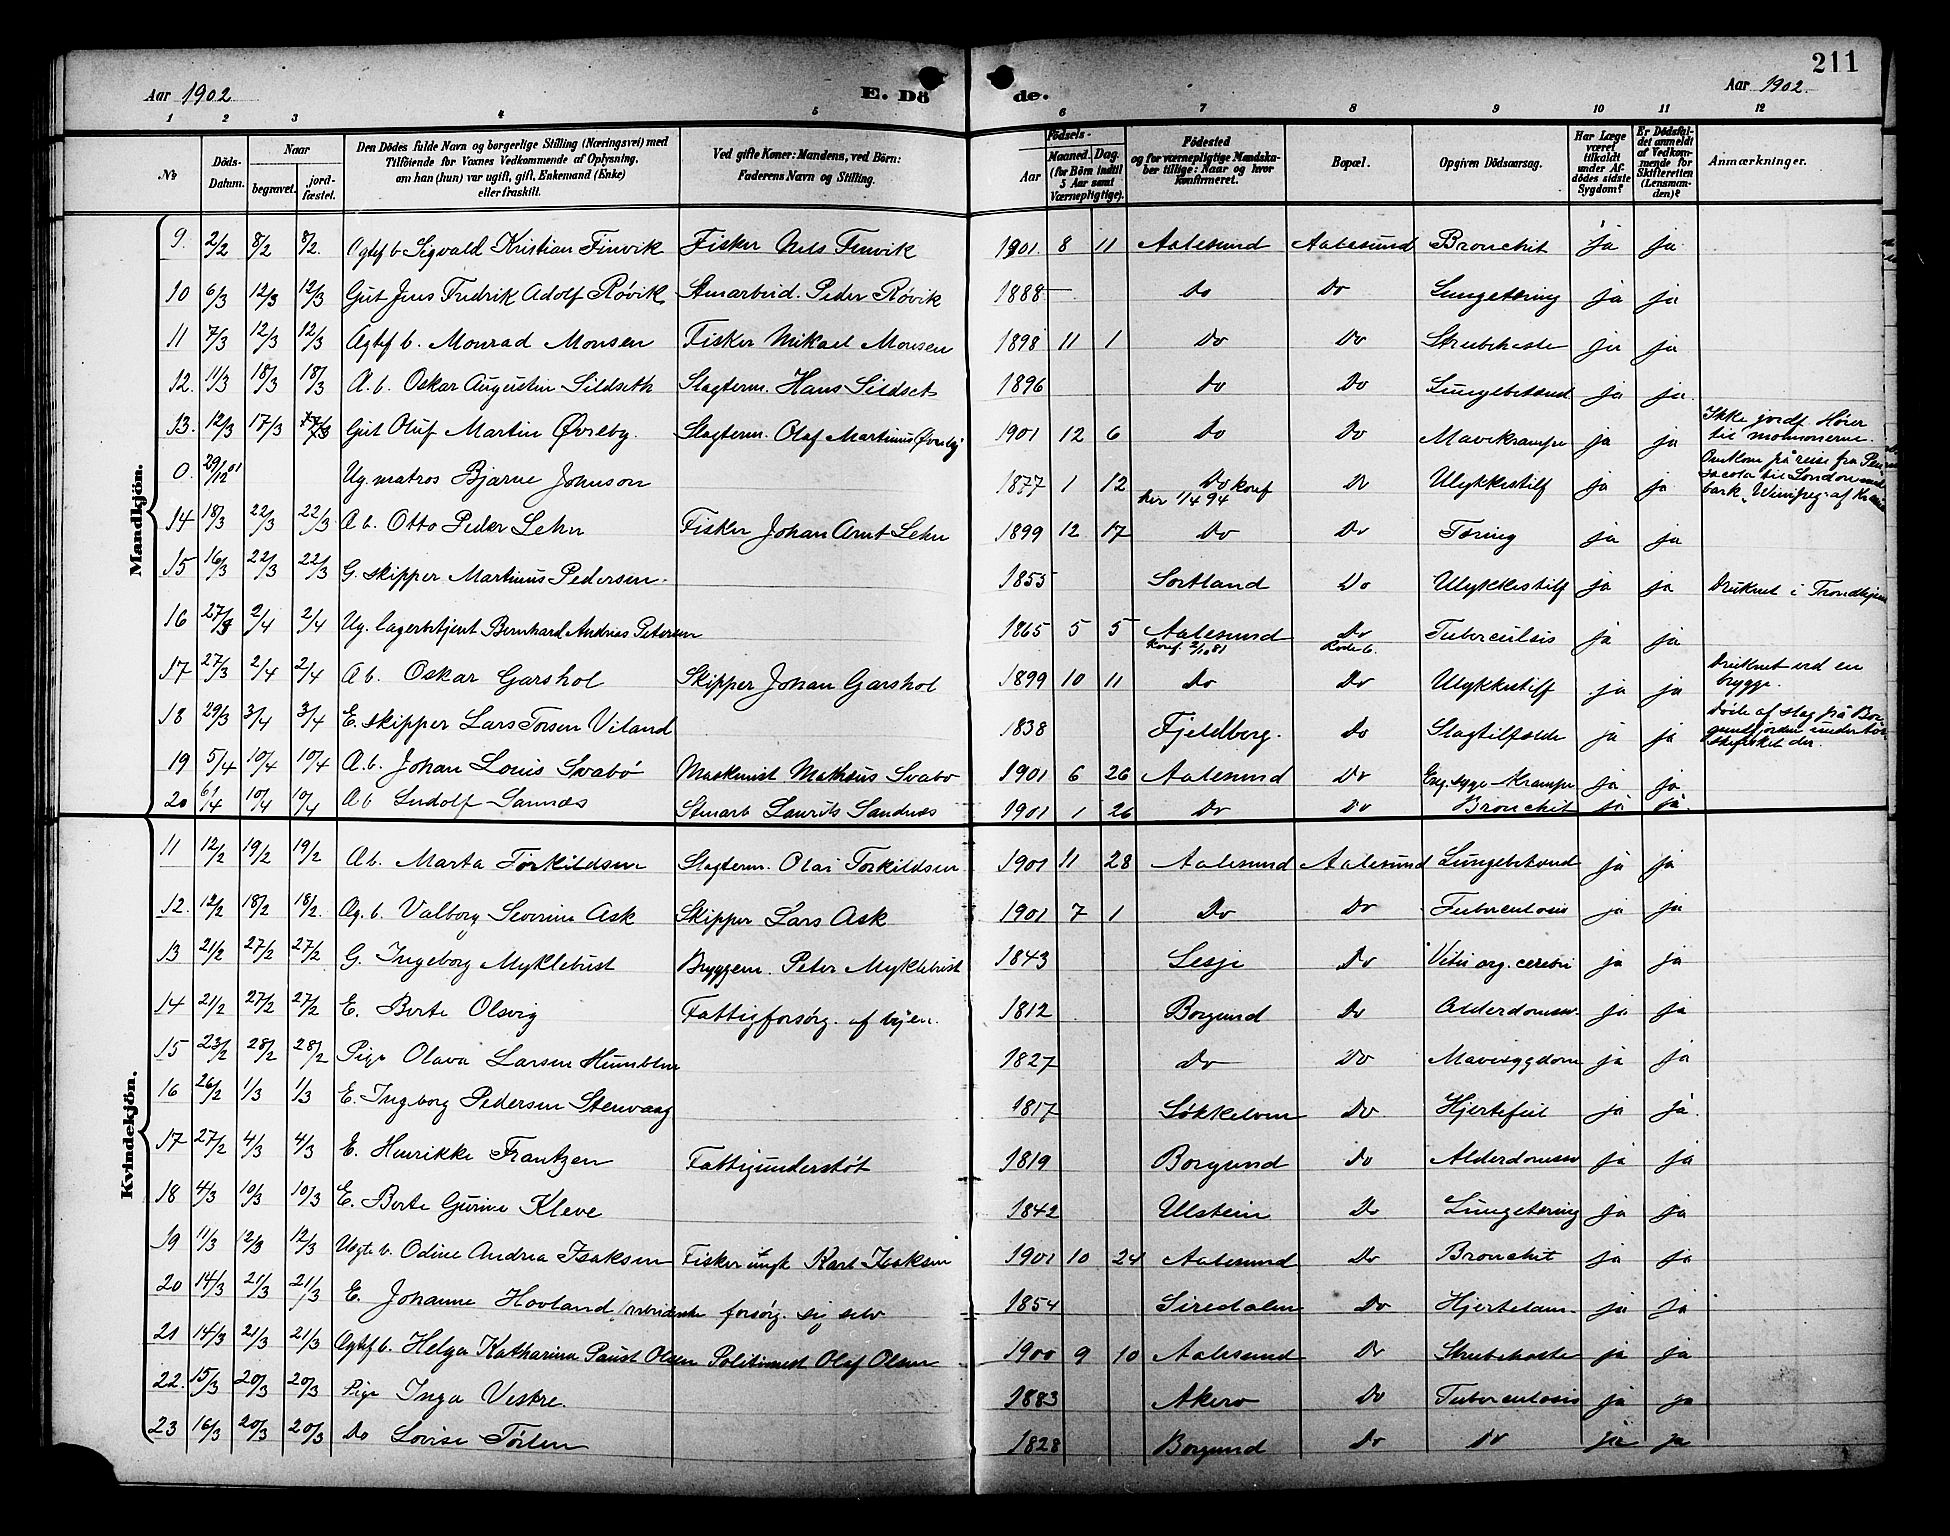 211
Aar 1902 E. Dö de. Aar 1902.
1 2 3 4 5 6 7 8 9 10 11 12
No
Döds-Datum.
Naar
begravet.
jord-fæstet.
Den Dödes fulde Navn og borgerlige Stilling (Næringsvei) med
Tilföiende for Voxnes Vedkommende af Oplysning,
om han (hun) var ugift, gift, Enkemand (Enke)
eller fraskilt.
Ved gifte Koner: Mandens, ved Börn:
Faderens Navn og Stilling.
Födsels-
Aar
Maaned. Dag.
(for Börn indtil
5 Aar samt
Værnepligtige).
Födested
og for værnepligtige Mandska-
ber tillige: Naar og hvor
Konfirmeret.
Bopæl.
Opgiven Dödsaarsag.
Har Læge
været
tilkaldt
under Af-
dödes sidste
Sygdom?
Er Dödsfal-
det anmeldt
af Vedkom-
mende for
Skifteretten
(Lensman-
den)?
Anmærkninger.
Mandkjön.
9. 2/2 8/2 8/2. Ægtef b Sigvald Kristian Finvik Fisker Nils Finvik 1901. 8 11 Aalesund Aalesund Bronchit ja ja
10 6/3 12/3 12/3 Gut Jens Fredrik Adolf Røvik Stenarbeid. Peder Røvik 1888 Do Do Lungetæring ja ja
11 7/3 12/3 12/3 Ægtef b. Monrad Monsen Fisker Mikael Monsen 1898 11 1 Do Do Strubehoste ja ja
12. 11/3 18/3 18/3 Æ. b. Oskar Augustin Sildseth Slagterm. Hans Sildset 1896 Do Do Lungebetænd ja ja
13. 12/3 17/3 17/3 Gut Oluf Martin Øvreby. Slagterm. Olaf Martinus Øvreby 1901 12 6 Do Do Mavekrampe ja ja Ikke jordf. Hører til mormonerne.
0. 29/12 01 Ug. matros Bjarne Johnson 1877 1 12 Do konf her 1/4 94 Do Ulykkestilf ja ja Omkom på reise fra Pensacola til London med bark "Winipeg" af
14 18/3 22/3 22/3 Æ b. Otto Peder Lehn Fisker Johan Arnt Lehn 1899 12 17 Do Do Tæring ja ja
15 16/3 22/3 22/3 G. skipper Martinus Pedersen. 1855 Sortland Do Ulykkestilf ja ja Druknet i Trondhjem
16 27/3 2/4 2/4 Ug. lagerbetjent Bernhard Andreas Petersen 1865 5 5 Aalesund Konf. 2/10 81 Do Rode 6. Tuberculsis ja ja
17 27/3 2/4 2/4 Æ b. Oskar Garshol Skipper Johan Garshol 1899 10 11 Do Do Ulykkestilf ja ja Druknet ved en brygge.
18 29/3 3/4 3/4 E. skipper Lars Torsen Viland 1838 Fjeldberg. Do Slagtilfælde ja ja Døde af slag på Borgundfjorden under torskefisket der.
19 5/4 10/4 10/4 Æ. b. Johan Louis Svabø Maskinist Mathæus Svabø 1901 6 26 Aalesund Do Eng. syge-Krampe ja ja
20 6/4 10/4 10/4 Æ b Ludolf Sannæs Stenarb Laurits Sandnæs 1901 1 26 Do Do Bronchit ja ja.
Kvindekjön.
11 12/2 19/2 19/2 Æ b. Marta Torkildsen Slagterm. Olai Torkildsen 1901 11 28 Aalesund Aalesund Lungebetænd ja ja
12. 12/2 18/2 18/2. Æg. b. Valborg Severine Ask Skipper Lars Ask 1901 7 1 Do Do Tuberculosis ja ja
13 21/2 27/2 27/2 G. Ingeborg Myklebust Bryggem. Peter Myklebust 1843 Lesje Do Vitii org. cerebri ja ja
14 21/2 27/2 27/2 E. Berte Olsvig Fattigforsørg. af byen. 1812 Borgund Do Alderdomssv ja ja
15 23/2 28/2 28/2 Pige Olava Larsen Humblen 1827 Do Do Mavesygdom ja ja
16 26/2 1/3 1/3 E. Ingeborg Pedersen Stenvaag 1817 Søkkelven Do Hjertefeil ja ja
17 27/2 4/3 4/3 E. Henrikke Frantzen Fattigunderstøt 1819 Borgund Do Alderdomssv ja ja
18 4/3 10/3 10/3 E. Berte Gurine Kleve 1842 Ulstein Do Lungetæring ja ja
19 11/3 12/3 12/3 Uægte b. Odine Andrea Isaksen Fisker ungk Karl Isaksen 1901 10 24 Aalesund Do Bronchit ja ja
20 14/3 21/3 21/3 E. Johanne Hovland, arbeiderske forsørg. sig selv 1854 Siredalen Do Hjertelam. ja ja
21 14/3 21/3 21/3 Ægtef b. Helga Katharina Paust Olsen Politimest Olaf Olsen 1900 9 10 Aalesund Do Strubehoste ja ja
22. 15/3 20/3 20/3 Pige Inga Vestre. 1883 Akerø Do Tuberculosis ja ja
23 16/3 20/3 20/3 Do Lovise Tørlen 1828 Borgund Do Do ja ja